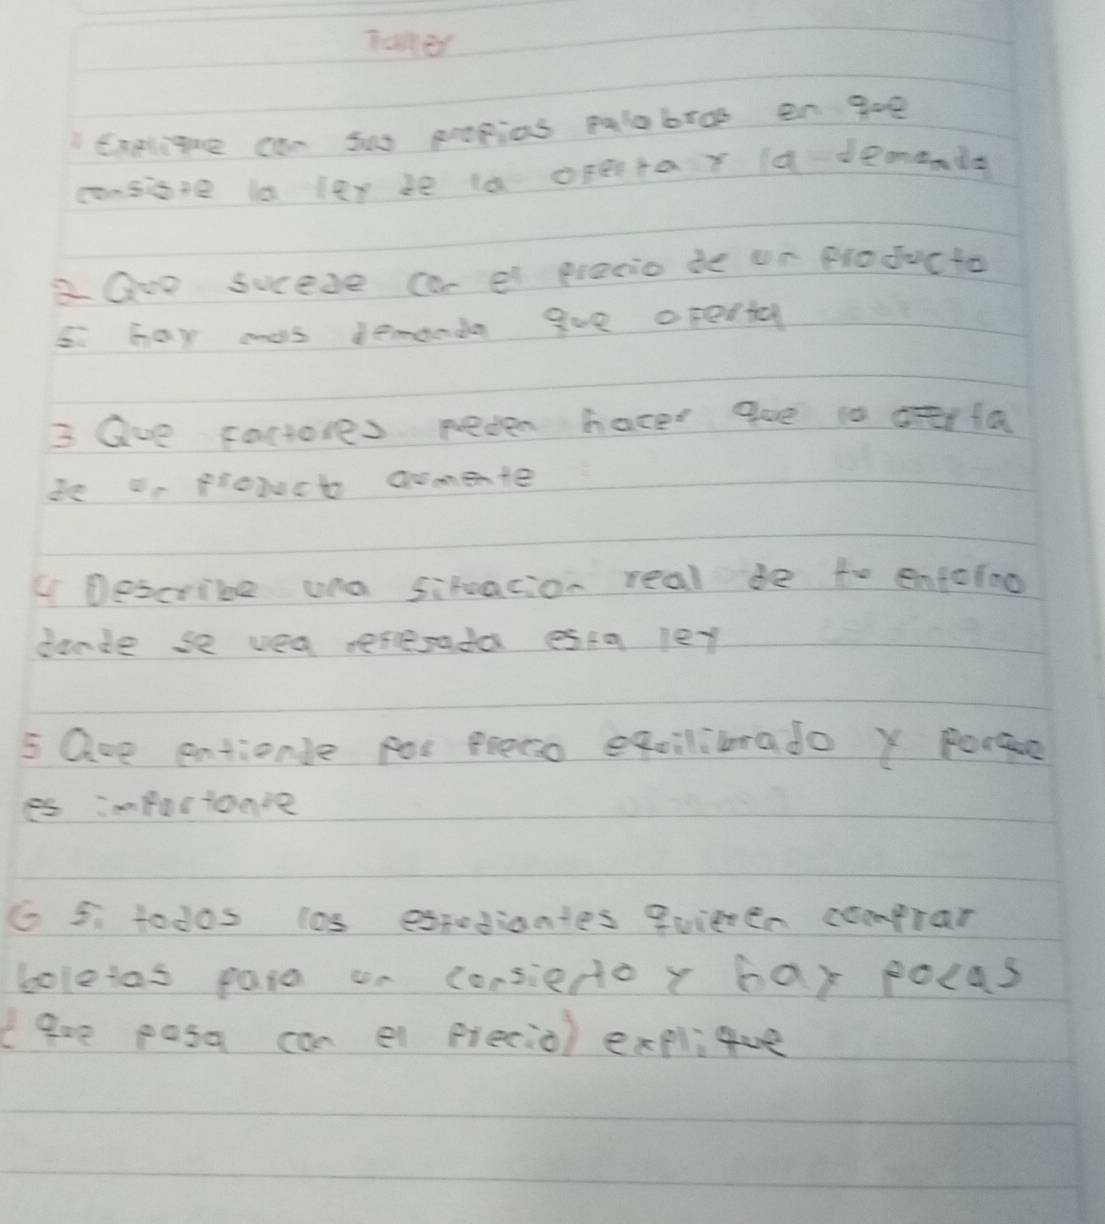 Taller
1 Explique con sus propias palabras en que
consiste la ley de la oferta y la demanda
2 Que sucede con el precio de un producto
si hay mas demanda que oferta
3 Que factores peden hacer que la oferta
de un producto aumente
4 Describe una situacion real de tu entorno
donde se vea reflesada esta ley
5 Que entiende por precio equilibrado y porque
es importante
6 Si todos los estudiantes quieren comprar
boletas para un consierto y hay pocas
¿que pasa con el precio) explique